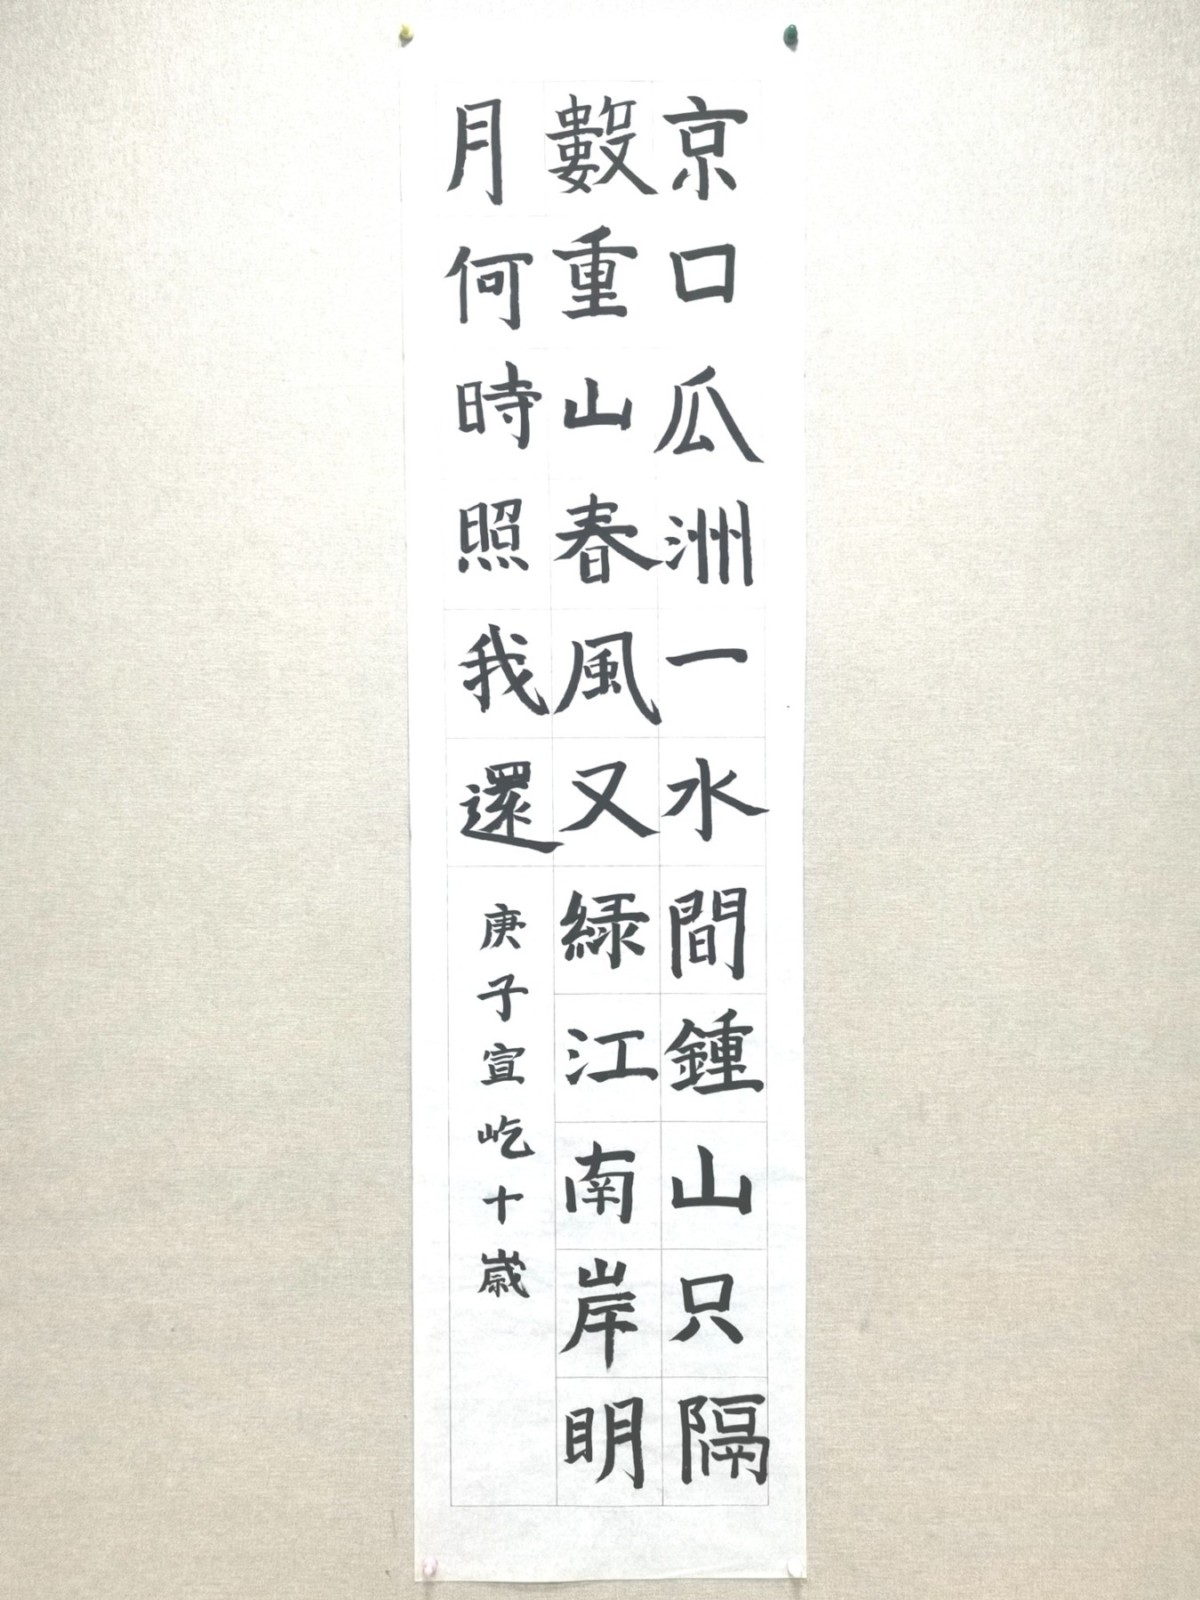 京口瓜洲一水間鍾山只隔
數重山春風又綠江南岸明
月何時照我還
庚子宣屹十歲